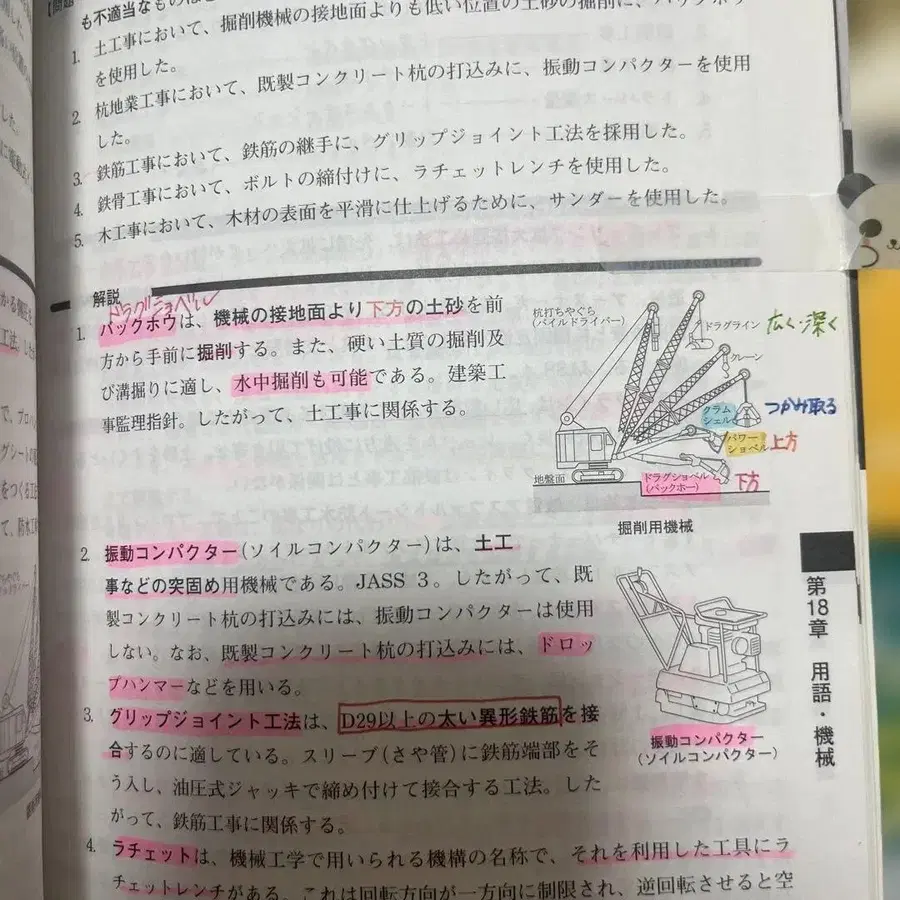 【問題
も不適当なものは
1. 土工事において、掘削機械の接地面よりも低い位置の土砂の掘削に、バックホウ
を使用した。
2. 杭地業工事において、既製コンクリート杭の打込みに、振動コンパクターを使用
した。
3. 鉄筋工事において、鉄筋の継手に、グリップジョイント工法を採用した。
4. 鉄骨工事において、ボルトの締付けに、ラチェットレンチを使用した。
5. 木工事において、木材の表面を平滑に仕上げるために、サンダーを使用した。
解説
ドラグショベル
1. バックホウは、機械の接地面より下方の土砂を前
方から手前に掘削する。また、硬い土質の掘削及
び溝掘りに適し、水中掘削も可能である。建築工
事監理指針。したがって、土工事に関係する。
杭打ちやぐら
(パイルドライバー)
ドラグライン 広く深く
クレーン
クラム
シェル つかみ取る
パワー
ショベル 上方
地盤面
ドラグショベル
(バックホー) 下方
掘削用機械
2. 振動コンパクター(ソイルコンパクター)は、土工
事などの突固め用機械である。JASS 3。したがって、既
製コンクリート杭の打込みには、振動コンパクターは使用
しない。なお、既製コンクリート杭の打込みには、ドロッ
プハンマーなどを用いる。
3. グリップジョイント工法は、D29以上の太い異形鉄筋を接
合するのに適している。スリーブ(さや管)に鉄筋端部をそ
う入し、油圧式ジャッキで締め付けて接合する工法。した
がって、鉄筋工事に関係する。
振動コンパクター
(ソイルコンパクター)
4. ラチェットは、機械工学で用いられる機構の名称で、それを利用した工具にラ
チェットレンチがある。これは回転方向が一方向に制限され、逆回転させると空
第18章 用語・機械